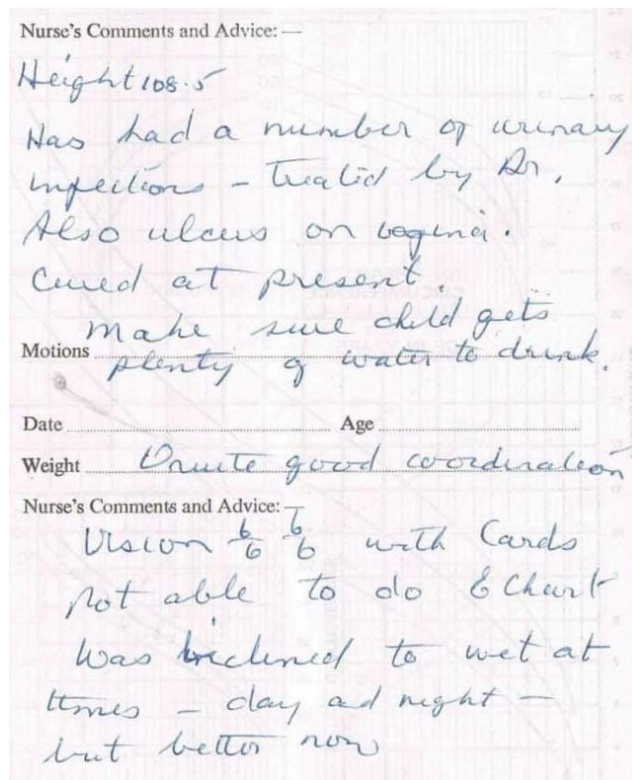 Nurse's Comments and Advice:—
Height 108.5
Has had a number of urinary
infections – treated by Dr.
Also ulcers on vagina.
Cured at present.
Make sure child gets
Motions plenty of water to drink.
Date Age
Weight Quite good coordination
Nurse's Comments and Advice:—
Vision 6/6 6/6 with Cards
not able to do E Chart
Was inclined to wet at
times – day ad night –
but better now